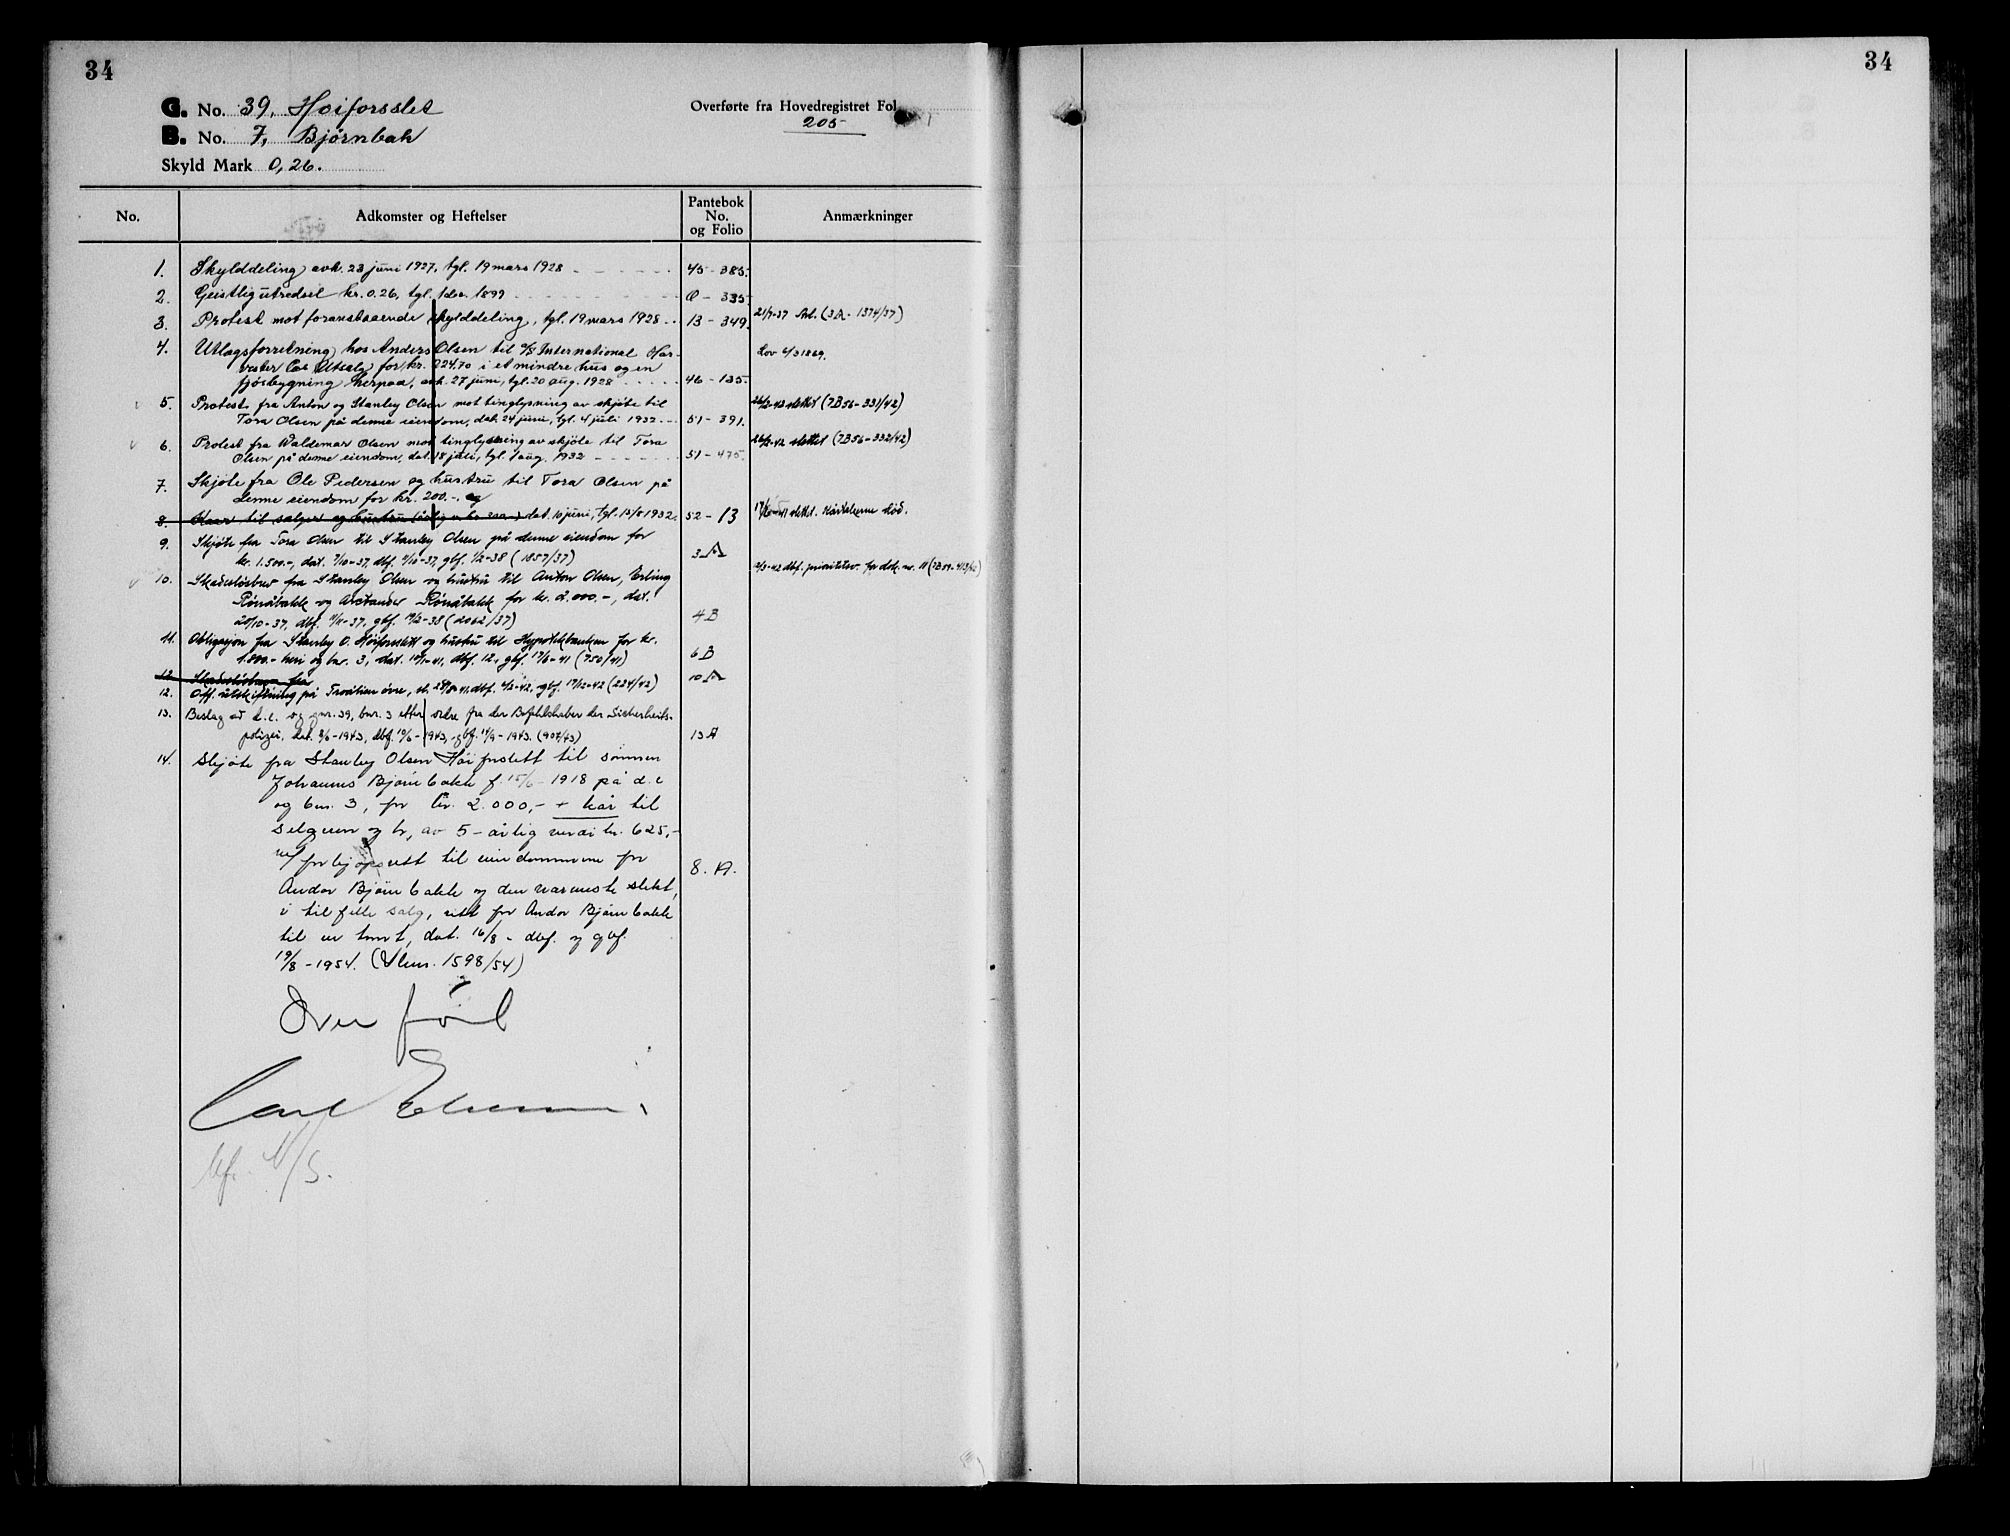 34
34
G. No. 39, Høiforsslet
B. No. 7, Bjørnbak
Skyld Mark 0,26.
Overførte fra Hovedregistret Fol.
205
No.
Adkomster og Heftelser
Pantebok No. og Folio
Anmærkninger
1. Skylddeling avh. 23 juni 1927, tgl. 19 mars 1928 45 - 385.
2. Geistlig utredsel kr. 0.26, tgl. 1 des. 1899 Q - 335.
3. Protest mot foranstaaende skylddeling, tgl. 19 mars 1928 13 - 349. 21/7-37 Avl. (3A - 1374/37)
4. Utlægsforretning hos Anders Olsen til A/S International Har-
vester Co's Utsalg for kr. 224.70 i et mindre hus og en
fjøsbygning herpaa, avh. 27 juni, tgl. 20 aug. 1928 46 - 135. Lov 6/3 1869.
5. Protest fra Anton og Stanley Olsen mot tinglysning av skjøte til 26/2-43 slettet (7B56-331/42)
Tora Olsen på denne eiendom, dat. 24 juni, tgl. 4 juli 1932 51 - 391.
6. Protest fra Waldemar Olsen mot tinglysning av skjøte til Tora 26/2-42 slettet (7B56-332/42)
Olsen på denne eiendom, dat. 18 juli, tgl. 1 aug. 1932 51 - 475.
7. Skjøte fra Ole Pedersen og hustru til Tora Olsen på
denne eiendom for kr. 200.-. og
8. Kaar til sælger og hustru (årlig v. kr. 200.-) dat. 10 juni, tgl. 15/8 1932. 52 - 13 slettet. Kårtakerne død.
9. Skjøte fra Tora Olsen til Stanley Olsen på denne eiendom for
kr. 1.500.-, dat. 7/10-37, dbf. 9/10-37, gbf. 1/2-38 (1857/37) 3 A
10. Skadesløsbrev fra Stanley Olsen og hustru til Anton Olsen, Erling 2/3-42 dbf. prioritetsv. for dok. nr. 11 (7B59-413/42)
Rønåbakk og Arctander Rønåbakk for kr. 2.000.-, dat.
29/10-37, dbf. 4/11-37, gbf. 19/2-38 (2062/37) 4 B
11. Obligasjon fra Stanley O. Høiforslett og hustru til Hypotekbanken for kr.
1.800.- heri og bnr. 3, dat. 10/1-41, dbf. 12., gbf. 17/6-41 (750/41) 6 B
12. Skadesløsbrev fra
12. Off. utskiftning på Trolien øvre, st. 28/8-41, dbf. 4/2-42, gbf. 17/12-42 (224/42) 10 A
13. Beslag av d.e. og gnr. 39, bnr. 3 etter ordre fra der Befehlshaber der Sicherheits-
polizei, dat. 8/6-1943, dbf. 10/6-1943, gbf. 14/9-1943. (907/43) 13 A
14. Skjøte fra Stanley Olsen Høiforslett til sønnen
Johannes Bjørnbakk f. 15/6-1918 på d.e
og bnr. 3, for kr. 2.000,- + kår til
selgeren og h, av 5-årlig verdi kr. 625,-
m/ forkjøpsrett til eiendommene for 8. A.
Andor Bjørnbakk og den nærmeste slekt,
i tilfelle salg, rett for Andor Bjørnbakk
til en tomt, dat. 16/8 - dbf. og gbf.
19/8-1954. (Jnr. 1598/54)
Overført
Carl